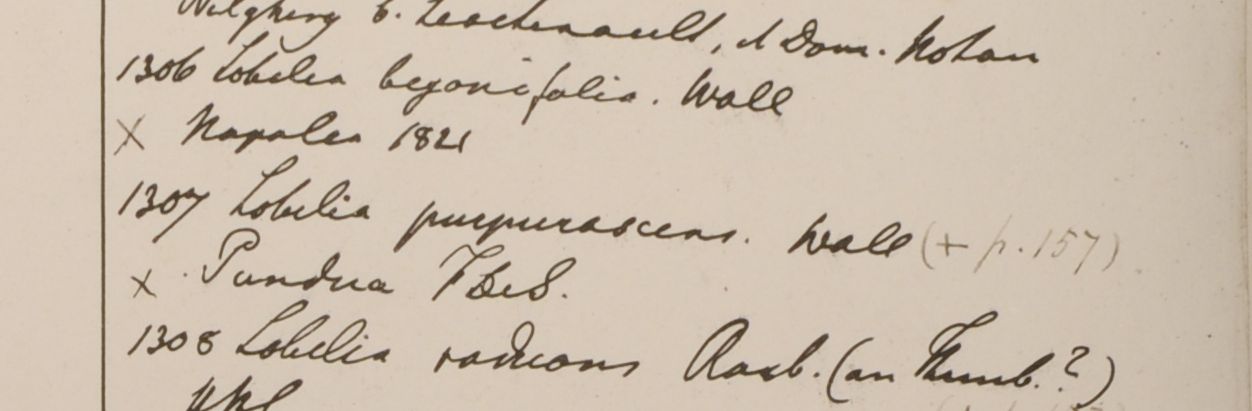 Nilghiry b. Leschenault, d Dom. Notan
1306 Lobelia begonifolia. Wall
X Napalea 1821
1307 Lobelia purpurascens. Wall (+ p. 157)
x Pundua FDeS.
1308 Lobelia radicans Roxb. (an Thunb.?)